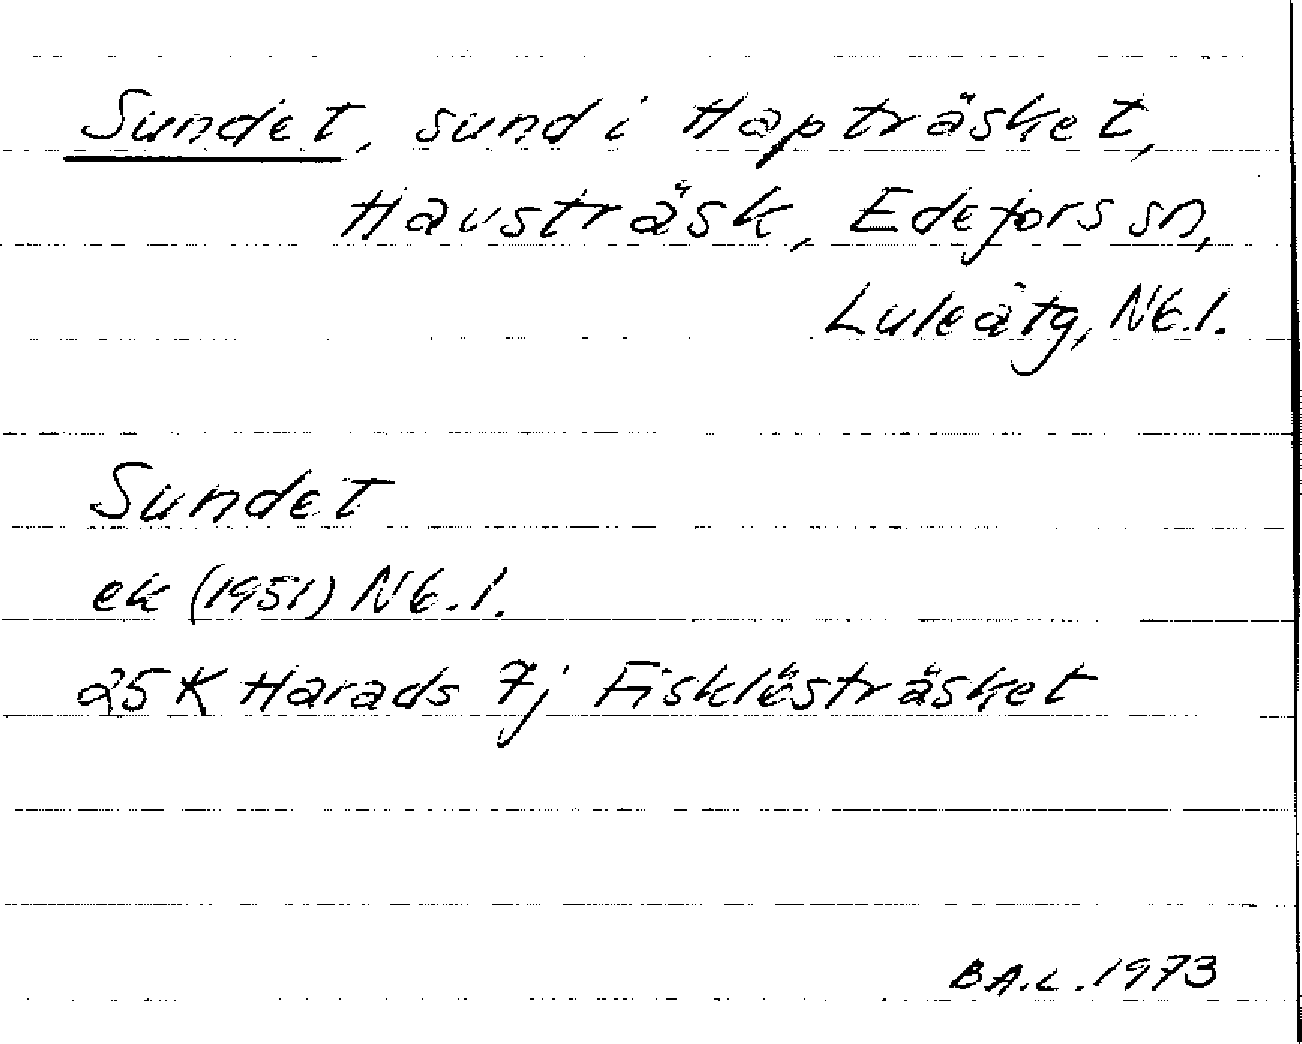 Sundet, sund i Hapträsket,
Hausträsk, Edefors sn,
Luleå tg, Nb.l.
Sundet
ek (1951) Nb.l.
25K Harads 7j Fisklösträsket
B A.L. 1973